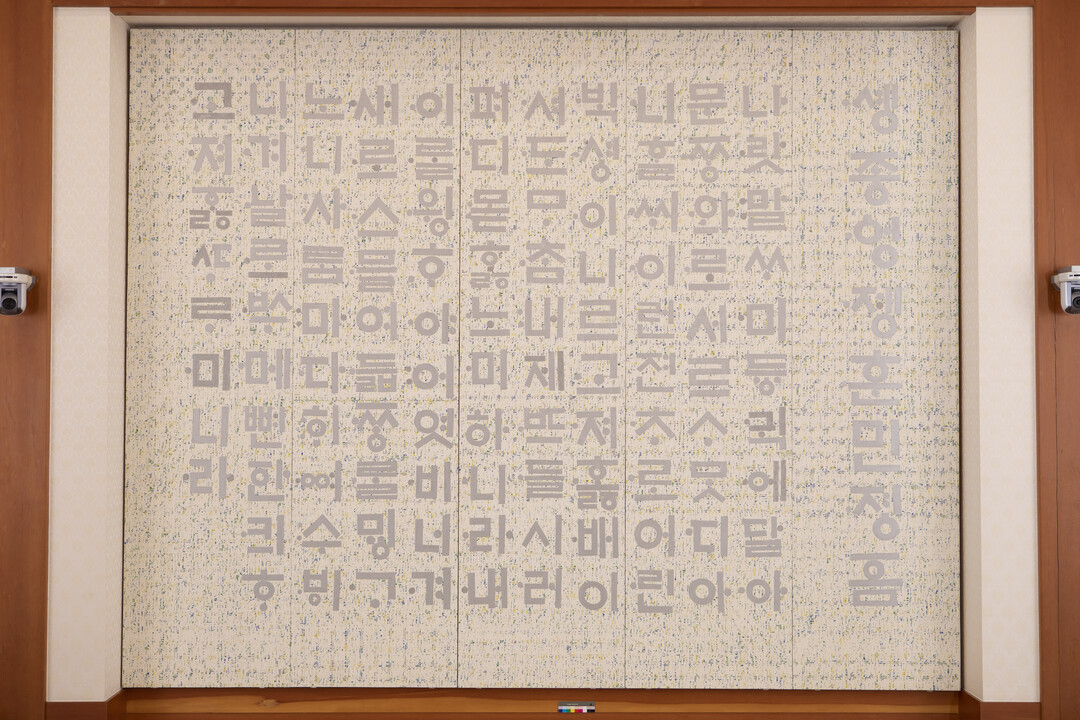 솅종엉졩훈민져ᇰᅙᅳᆷ
나랏말ᄊᆞ미듀ᇰ귁에달아
문ᄍᆞᆼ와로서르ᄉᆞᄆᆞᆺ디아
니ᄒᆞᆯᄊᆡ이런젼ᄎᆞ로어린
ᄇᆡᆨ셔ᇰ이니르고져홇배이
셔도ᄆᆞᄎᆞᆷ내제ᄠᅳ들시러
펴디몯ᄒᆞᇙ노미하니라내
이ᄅᆞᆯ윙ᄒᆞ야어엿비너겨
새로스믈여듧ᄍᆞᆼᄅᆞᆯᄆᆡᇰᄀᆞ
노니사ᄅᆞᆷ마다ᄒᆡᅇᅧ수ᄫᅵ
니겨날로ᄡᅮ메뼌ᅙᅡᆫ킈ᄒᆞ
고져ᄒᆞᇙᄯᆞᄅᆞ미니라